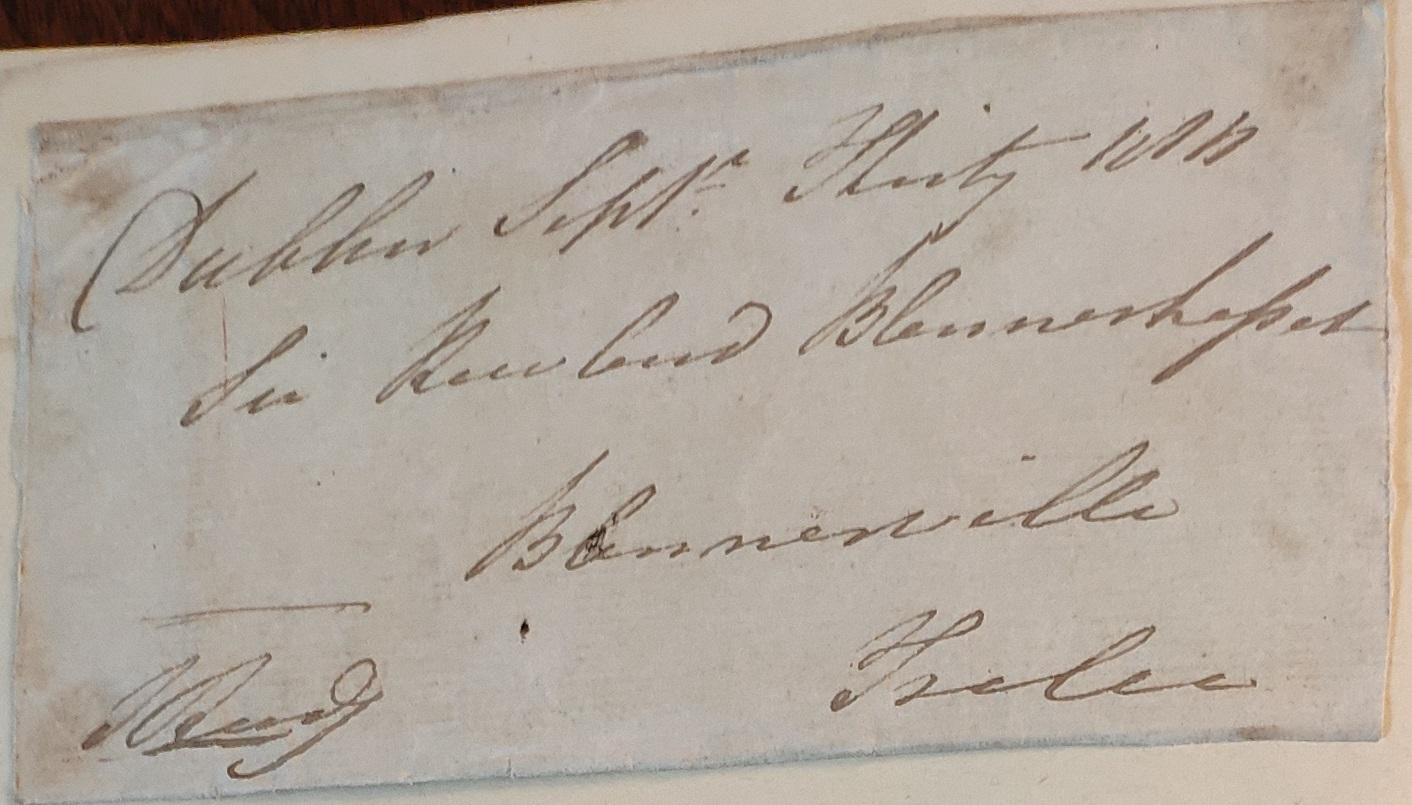 Dublin Septr. Thirty 1818
Sir Rowland Blennerhasset
Blennerville
Tralee